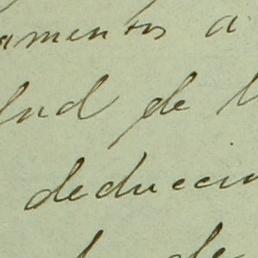 amentos a
lud de l
deduccion
de